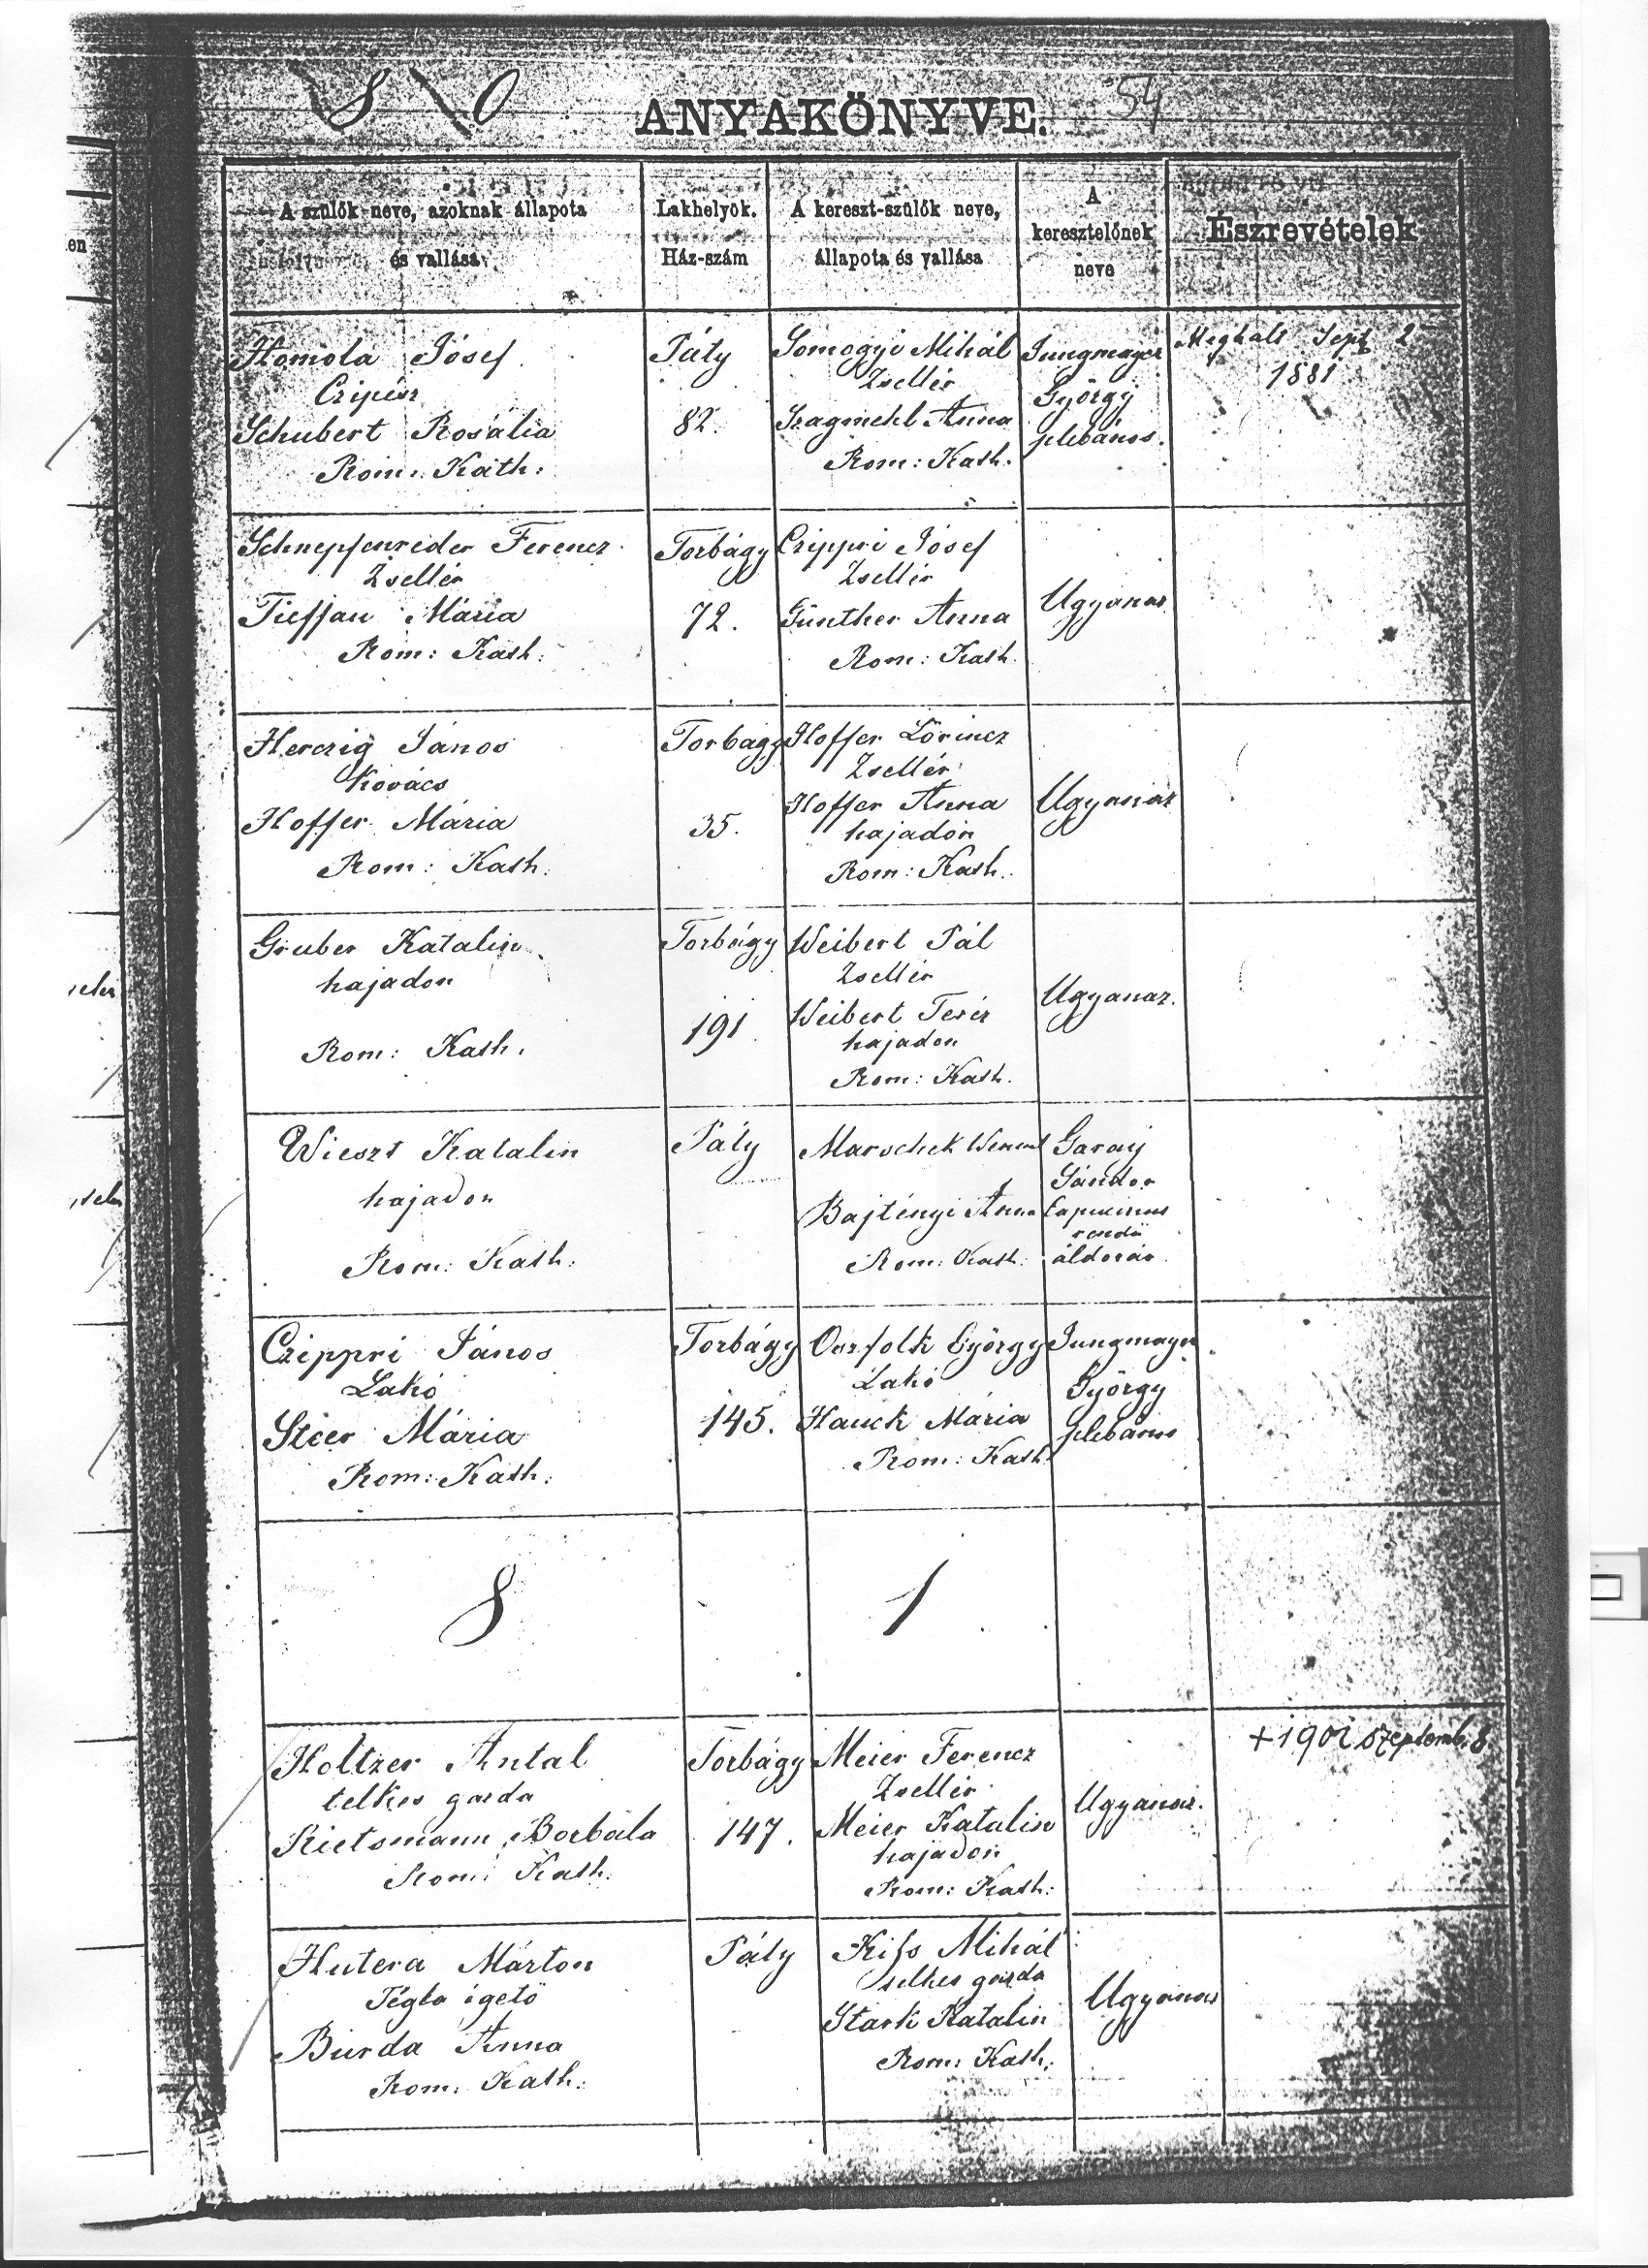 8 0
ANYAKÖNYVE. 54
A szülők neve, azoknak állapota
és vallása
Lakhelyök.
Ház-szám
A kereszt-szülők neve,
állapota és vallása
A
keresztelőnek
neve
Észrevételek
en
Homola Jósef
Czipész
Schubert Rosália
Rom: Kath:
Páty
82.
Somogyi Mihál
Zsellér
Szagmehl Anna
Rom: Kath.
Jungmayer
György
plébános.
Meghalt Sept 2
1881
Schnepfenreder Ferencz
Zsellér
Tieffau Mária
Rom: Kath:
Torbágy
72.
Czippri Jósef
Zsellér
Günther Anna
Rom: Kath.
Ugyanaz
Herczig János
Kovács
Hoffer Mária
Rom: Kath.
Torbágy
35.
Hoffer Lörincz
Zsellér
Hoffer Anna
hajadon
Rom: Kath.
Ugyanaz
Gruber Katalin
hajadon
Rom: Kath.
Torbágy
191
Weibert Pál
Zsellér
Weibert Teréz
hajadon
Rom: Kath.
Ugyanaz.
Wieszt Katalin
hajadon
Rom: Kath:
Páty
Marschek
Bajtényi Anna
Rom: Kath:
Garay
Sándor
Capucinus
rendü
áldozár
Czippri János
Lakó
Steer Mária
Rom: Kath:
Torbágy
145.
Oszfolk György
Lakó
Hauck Mária
Rom: Kath
Jungmayer
György
plébános
8 1
Holtzer Antal
telkes gazda
Rietsmann Borbála
Rom: Kath:
Torbágy
147.
Meier Ferencz
Zsellér
Meier Katalin
hajadon
Rom: Kath:
Ugyanaz.
+ 1901 Szeptemb. 8
Hutera Márton
Tégla égető
Burda Anna
Rom: Kath:
Páty
Kiss Mihál
telkes gazda
Stark Katalin
Rom: Kath:
Ugyanaz